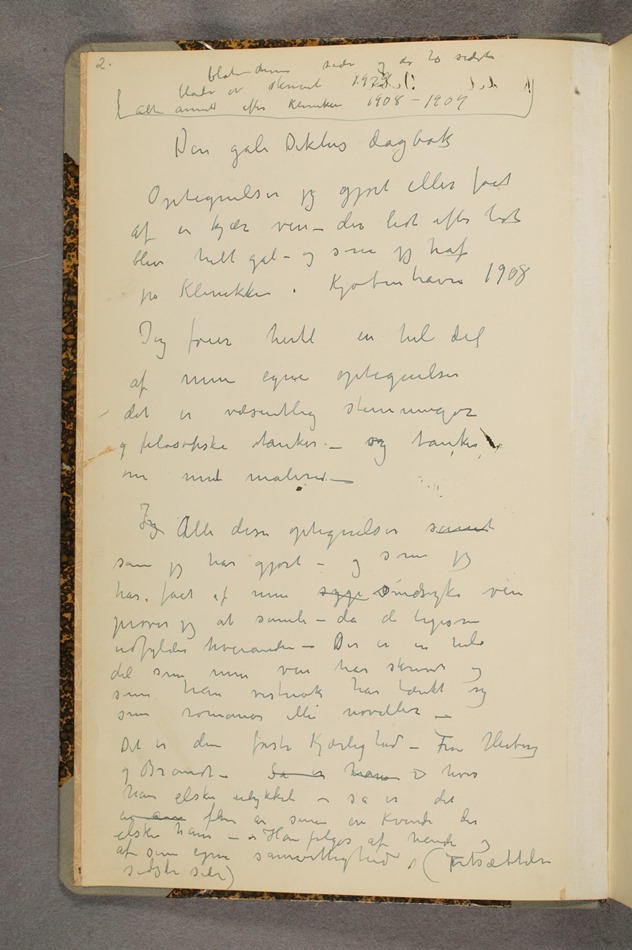 2.
bladet denne side og de to sidste
blade er skrevet 1929 (!
alt andet efter kliniken 1908 – 1909
Den gale Dikters dagbok
Optegnelser jeg gjort eller faat
af en kjær ven – der lidt efter lidt
blev helt gal – og som jeg traf
på Klinikken . Kjøbenhavn 1908
Jeg føier hertil en hel del
af mine egne optegnelser
det er væsentlig stemninger
og filosofiske tanker – og tanker
om mit maleri –
Jeg Alle disse optegnelser samt
som jeg har gjort – og som jeg
har faat af min syge sindsyke ven
prøver jeg at samle – da de ligesom
udfylder hverandre – Der er en hel
del som min ven har skrevet og
som han vistnok har tænkt sig
som romaner eller noveller –
Det er den første Kjærlighed – Fru Heiberg
og Brandt – Så er hans hvor
han elsker ulykkelig – så er det
en Kvinde der
elsker ham – Han følges af hende og
af sin egen samvittighed (Fortsættelse
sidste side)